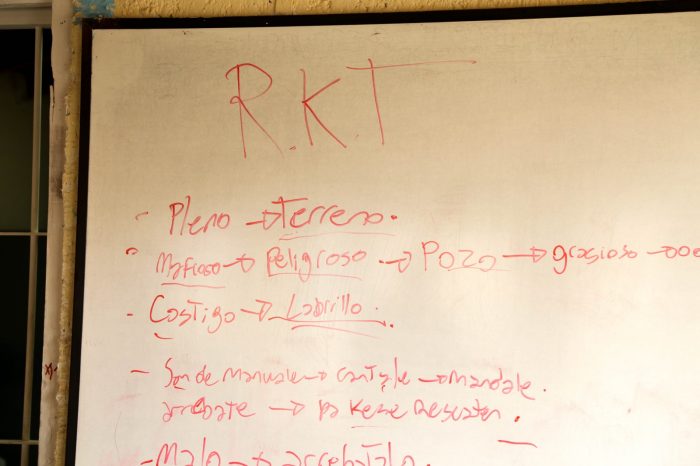 R.K.T
- Pleno → Terreno.
- Mafioso → Peligroso. → Pozo → grasioso →
- Castigo → Ladrillo.
- Son de manuale → cantale → mandale.
arrebate → pa kese Rescaten.
- Malo → arrebatalo.